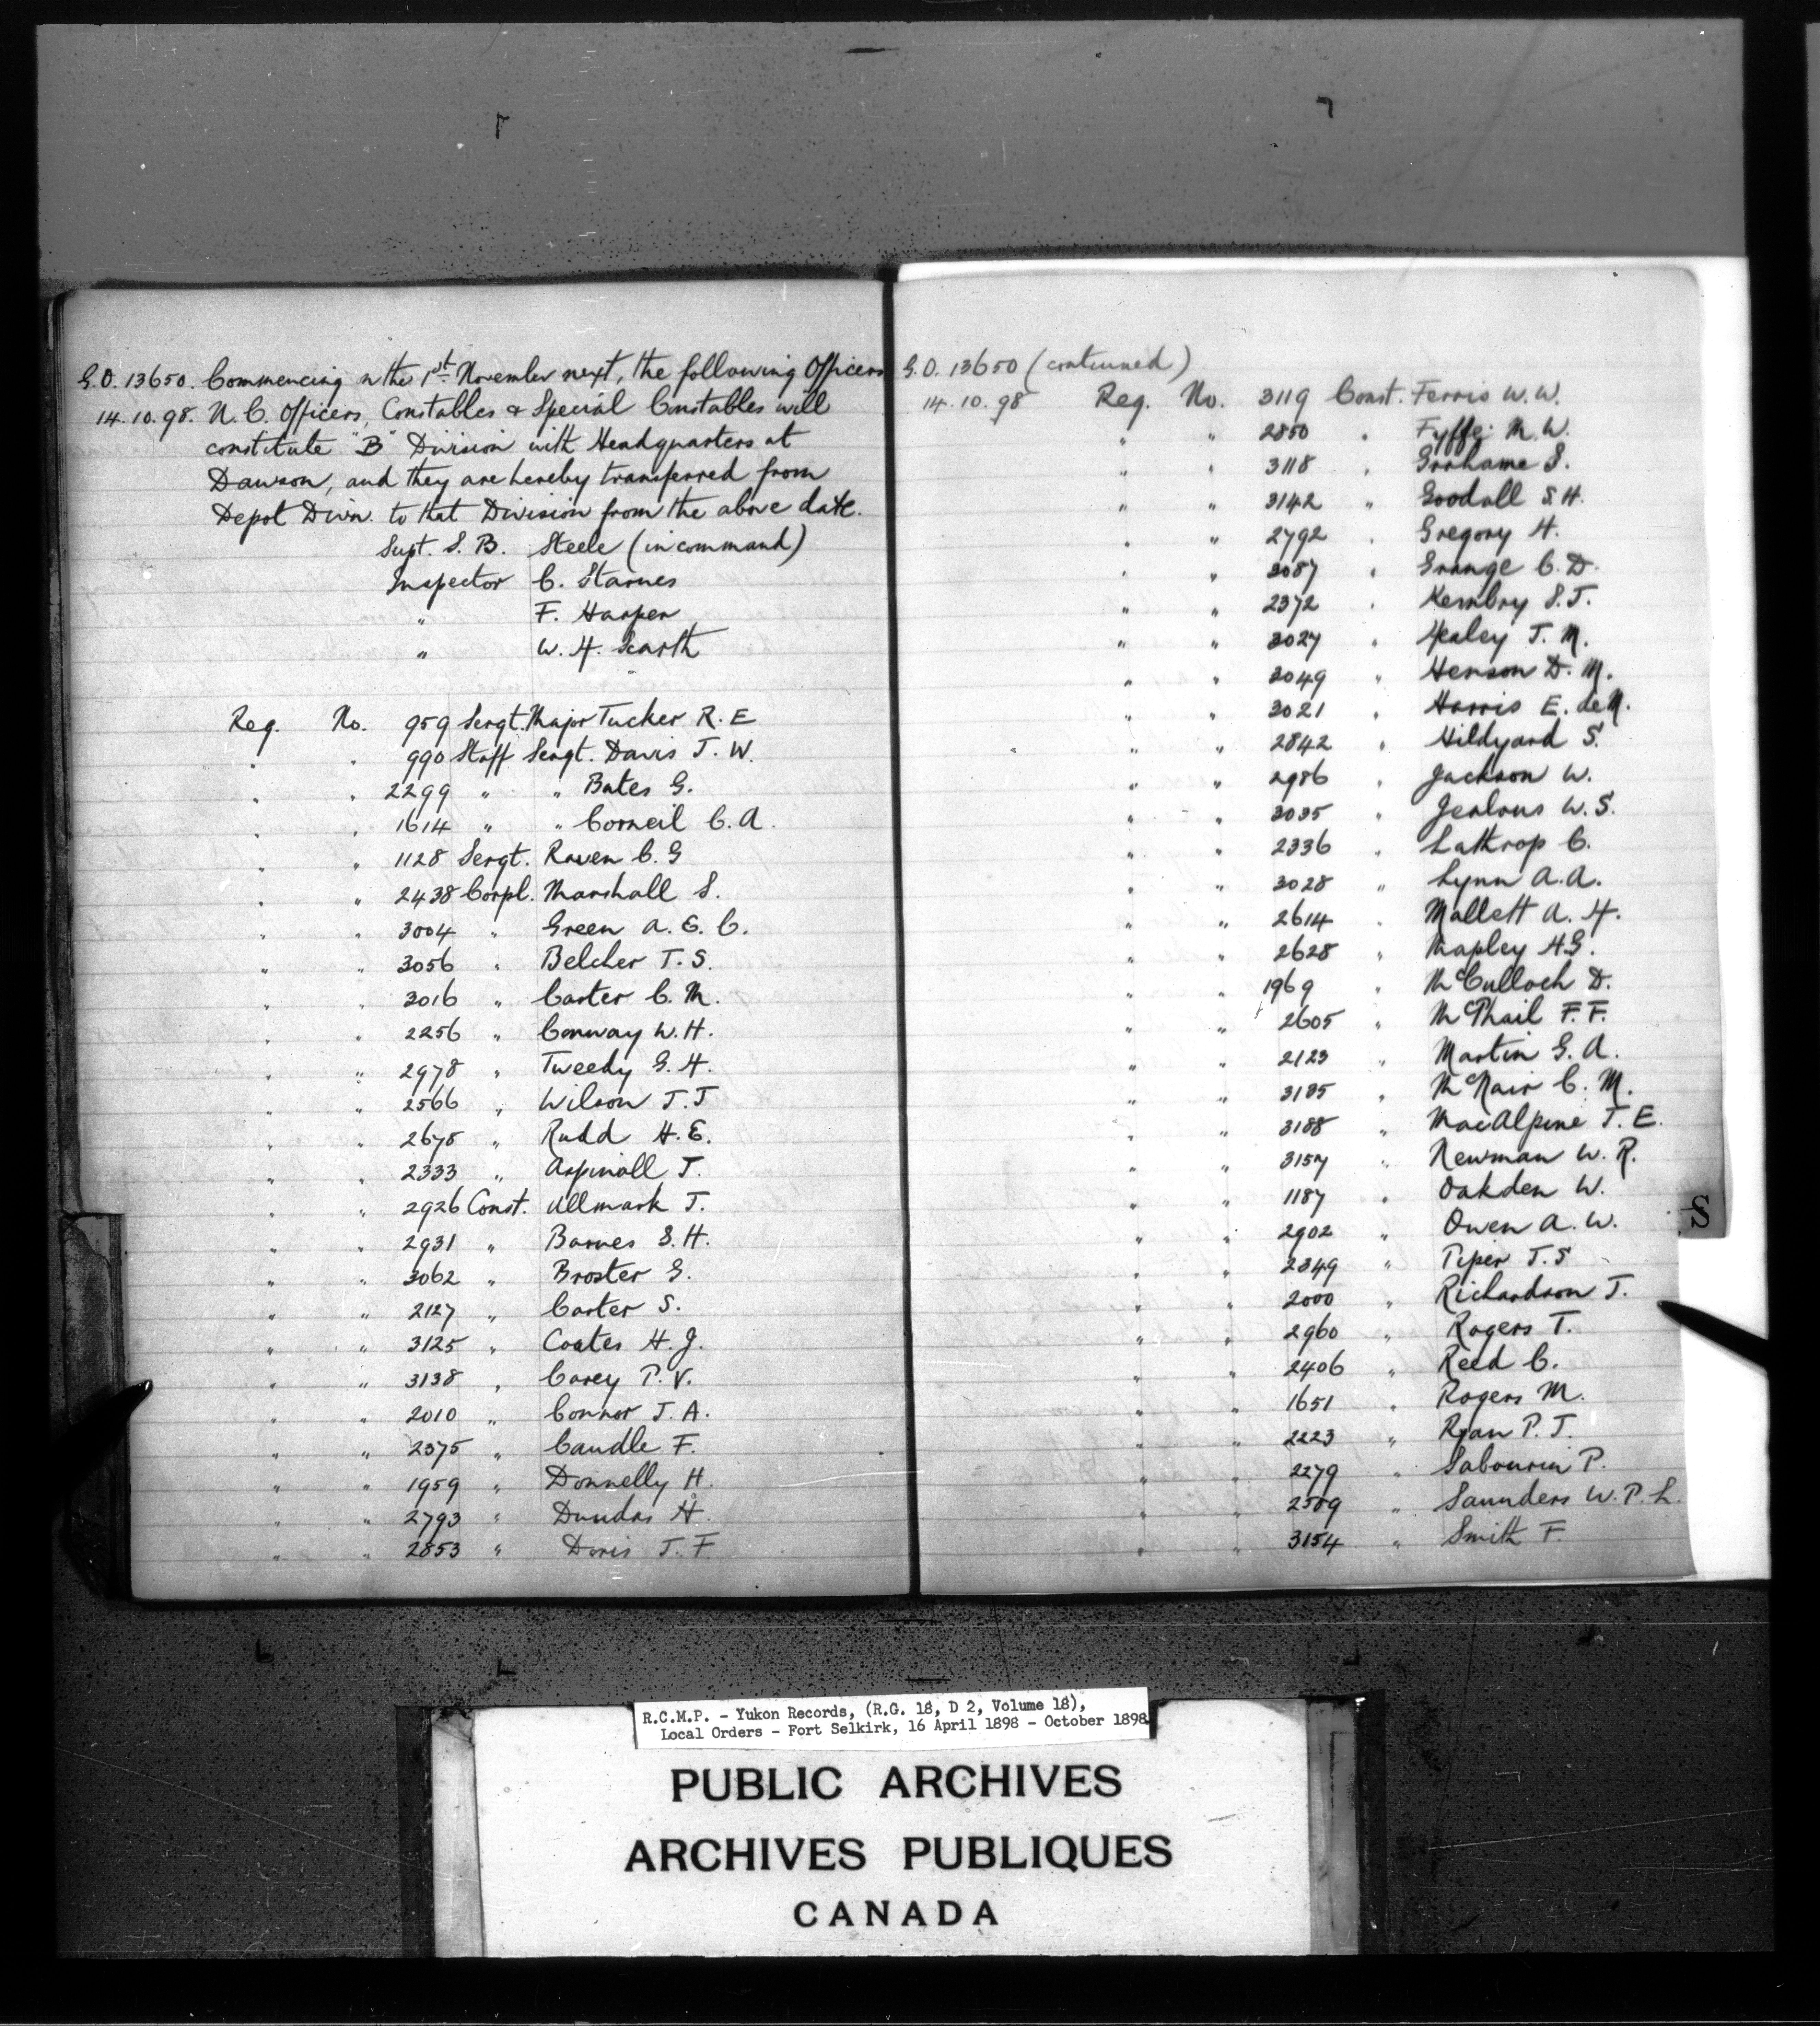 G.O. 13650. Commencing on the 1st November next, the following Officers
14.10.98. N.C. Officers, Constables & Special Constables will
constitute "B" Division with Headquarters at
Dawson, and they are hereby transferred from
Depot Divn. to that Division from the above date.
Supt. S. B. Steele (in command)
Inspector C. Starnes
" F. Harper
" W. H. Scarth
Reg. No. 959 Sergt. Major Tucker R. E
" " 990 Staff Sergt. Davis J. W.
" " 2299 " " Bates G.
" " 1614 " " Corneil C. A.
" " 1128 Sergt. Raven C. G
" " 2438 Corpl. Marshall S.
" " 3004 " Green A. E. C.
" " 3056 " Belcher T. S.
" " 3016 " Carter C. M.
" " 2256 " Conway W. H.
" " 2978 " Tweedy G. H.
" " 2566 " Wilson J. J
" " 2675 " Rudd H. E.
" " 2333 " Aspinall J.
" " 2926 Const. Allmark J.
" " 2931 " Barnes S. H.
" " 3062 " Broster G.
" " 2127 " Carter S.
" " 3125 " Coates H. J.
" " 3138 " Carey P. V.
" " 2010 " Connor J. A.
" " 2375 " Caudle F.
" " 1959 " Donnelly H.
" " 2793 " Dundas H.
" " 2853 " Doris J. F.
G.O. 13650 (continued)
14.10.98 Reg. No. 3119 Const. Ferris W. W.
" " 2850 " Fyffe M. W.
" " 3118 " Grahame S.
" " 3142 " Goodall S. H.
" " 2792 " Gregory H.
" " 3087 " Grange C. D.
" " 2372 " Hembry S. J.
" " 3027 " Healey J. M.
" " 3049 " Henson D. M.
" " 3021 " Harris E. de M.
" " 2842 " Hildyard S.
" " 2986 " Jackson W.
" " 3035 " Jealous W. S.
" " 2336 " Lathrop C.
" " 3028 " Lynn A. A.
" " 2614 " Mallett A. H.
" " 2628 " Mapley H. G.
" " 1969 " McCulloch D.
" " 2605 " McPhail F. F.
" " 2123 " Martin G. A.
" " 3185 " McNair C. M.
" " 3188 " MacAlpine J. E.
" " 3157 " Newman W. R.
" " 1187 " Oakden W.
" " 2902 " Owen A. W.
" " 2849 " Piper J. S
" " 2000 " Richardson J.
" " 2960 " Rogers T.
" " 2406 " Reed C.
" " 1651 " Rogers M.
" " 2223 " Ryan P. J.
" " 2279 " Sabourin P.
" " " Saunders W. P. L.
" " 3154 " Smith F.
S
R.C.M.P. - Yukon Records, (R.G. 18, D 2, Volume 18),
Local Orders - Fort Selkirk, 16 April 1898 - October 1898
PUBLIC ARCHIVES
ARCHIVES PUBLIQUES
CANADA